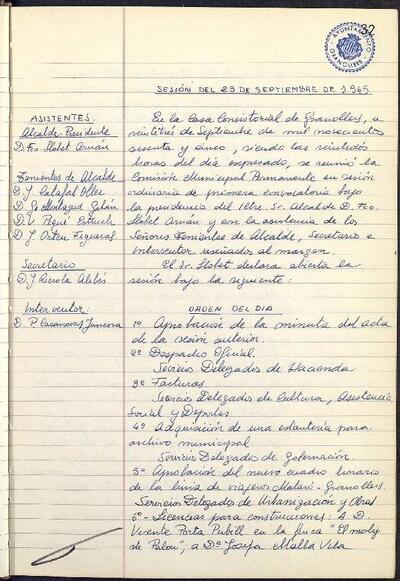 32
AYUNTAMIENTO
GRANOLLERS
SESIÓN DEL 23 DE SEPTIEMBRE DE 1.965
ASISTENTES.
Alcalde-Presidente
D. Fco. Llobet Arnán
Tenientes de Alcalde
D. J.
D. J.
D. V.
D. J. Figueras
Secretario
D. J.
Interventor:
D. P. Casanovas Juncosa
En la Casa Consistorial de Granollers, a
veintitrés de Septiembre de mil novecientos
sesenta y cinco, siendo las veintidós
horas del día expresado, se reunió la
Comisión Municipal Permanente en sesión
ordinaria de primera convocatoria bajo
la presidencia del Iltre. Sr. Alcalde D. Fco.
Llobet Arnán y con la asistencia de los
Señores Tenientes de Alcalde, Secretario e
Interventor reseñados al margen.
El Sr. Llobet declara abierta la
sesión bajo la siguiente:
ORDEN DEL DIA
1º Aprobación de la minuta del acta
de la sesión anterior.
2º Despacho Oficial.
Servicios Delegados de Hacienda
3º Facturas.
Servicios Delegados de Cultura, Asistencia
Social y Deportes.
4º Adquisición de una estantería para
archivo municipal
Servicios Delegados de Gobernación.
5º Aprobación del nuevo cuadro horario
de la línea de viajeros Mataró-Granollers.
Servicios Delegados de Urbanización y Obras
6º- Licencias para construcciones: A D.
Vicente Porta Pubill en la finca "El molí
de Palou", a Dª Josefa Malla Vila